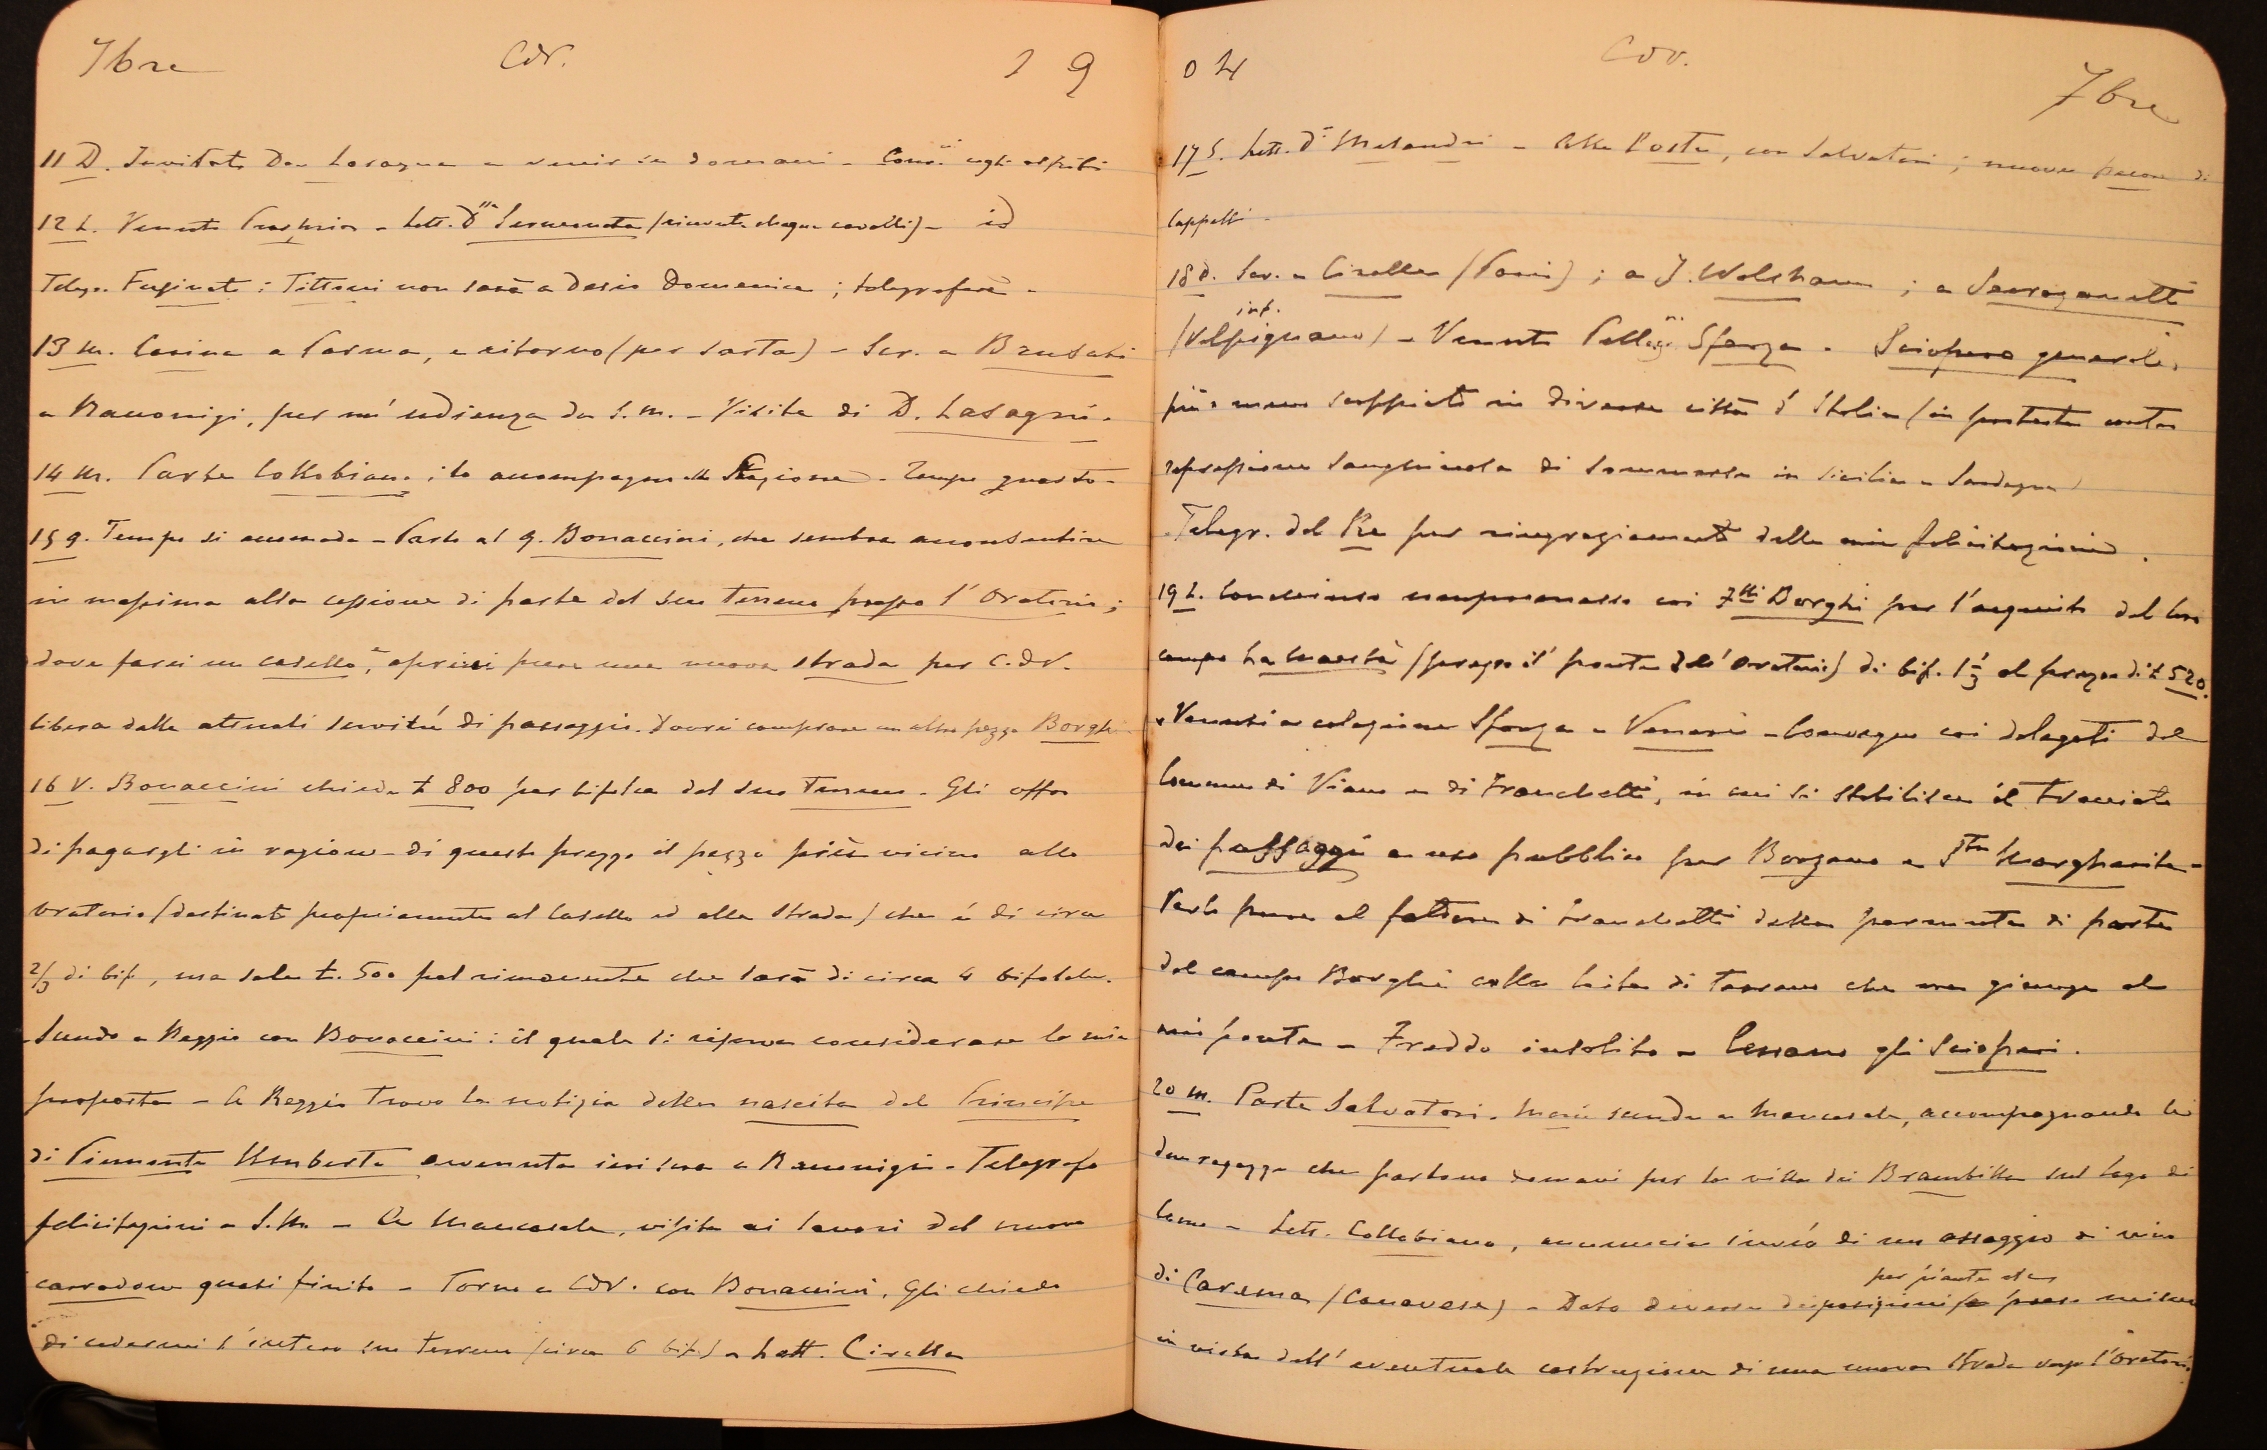 7bre CdV. 19
11 D. Invitato Don Lasagna a venir su domani - Com.i agli
12 L. Venuto - Lett. D.lla Sermoneta (ricevuta cheque cavalli) - id
Telegr. Fusinato: Tittoni non sarà a Desio Domenica; telegraferà -
13 M. Corina a Parma, e ritorno (per sarta) - Scr. a Brusati
a Racconigi, per un'udienza da S.M. - Visita di D. Lasagni.
14 M. Parte Collobiano; lo accompagno alla Stazione - Tempo guasto -
15 g. Tempo si accomoda - Parlo al g. Bonaccini, che sembra acconsentire
in massima alla cessione di parte del suo terreno presso l'Oratorio;
dove farei un casello, e aprirei pure una nuova strada per C.dV.
libera dalle attuali servitù di passaggio. Dovrei comprare un altro pezzo Borghi
16 V. Bonaccini chiede £ 800 per bifolca del suo terreno. Gli offro
di pagargli in ragione di questo prezzo il pezzo più vicino allo
oratorio (destinato propriamente al Casello ed alla strada) che è di circa
2/3 di bif., ma sole £. 500 pel rimanente che sarà di circa 4 bifolche.
Scendo a Reggio con Bonaccini: il quale si riserva considerare la mia
proposta - A Reggio trovo la notizia della nascita del Principe
di Piemonte Umberto avvenuta ieri sera a Racconigi - Telegrafo
felicitazioni a S.M. - A Mancasale, visita ai lavori del nuovo
corradore quasi finito - Torno a CdV. con Bonaccini, Gli chiedo
di cedermi l'intero suo terreno (circa 6 bif.) - Lett. Cirella
04 Cdv. 7bre
17 S. Lett. di Malandri - Alla Posta, con Salvatori; nuovo di
Cappelli -
18 D. Scr. a Cirella (Parigi); a J. Wolshaun; a Saragamelli
int.
(Volpignano) - Venuto Sforza - Sciopero generale,
più o meno scoppiato in diverse città d'Italia (in protesta contro
repressione sanguinosa di sommosse in Sicilia e Sardegna)
- Telegr. del Re per ringraziamenti delle mie felicitazioni.
19 L. Concluiuso compromesso coi F.lli Borghi per l'acquisto del loro
campo La Maestà (presso il ponte dell'Oratorio) di bif. 1 1/3 al prezzo di £ 520.
Venuti a colazione Sforza e Venerio - Convegno coi delegati del
Comune di Viano e di Franchetti, in cui si stabilisce il tracciato
dei passaggi a uso pubblico per Borzano e S.ta Margherita -
Parlo pure al fattore di Franchetti della permuta di parte
del campo Borghi colla lista di terreno che mi giunge al
mio ponte - Freddo insolito - Cessano gli Scioperi.
20 M. Parte Salvatori. Marì scende a Mancasale, accompagnando le
due ragazze che partono domani per la villa dei Brambilla sul lago di
Como - Lett. Collobiano, annuncia invio di un assaggio di vino
per piante ed a
di Carema (Canavese) - Dato diverse disposizioni prese misure
in vista dell'eventuale costruzione di una nuova strada verso l'Oratorio